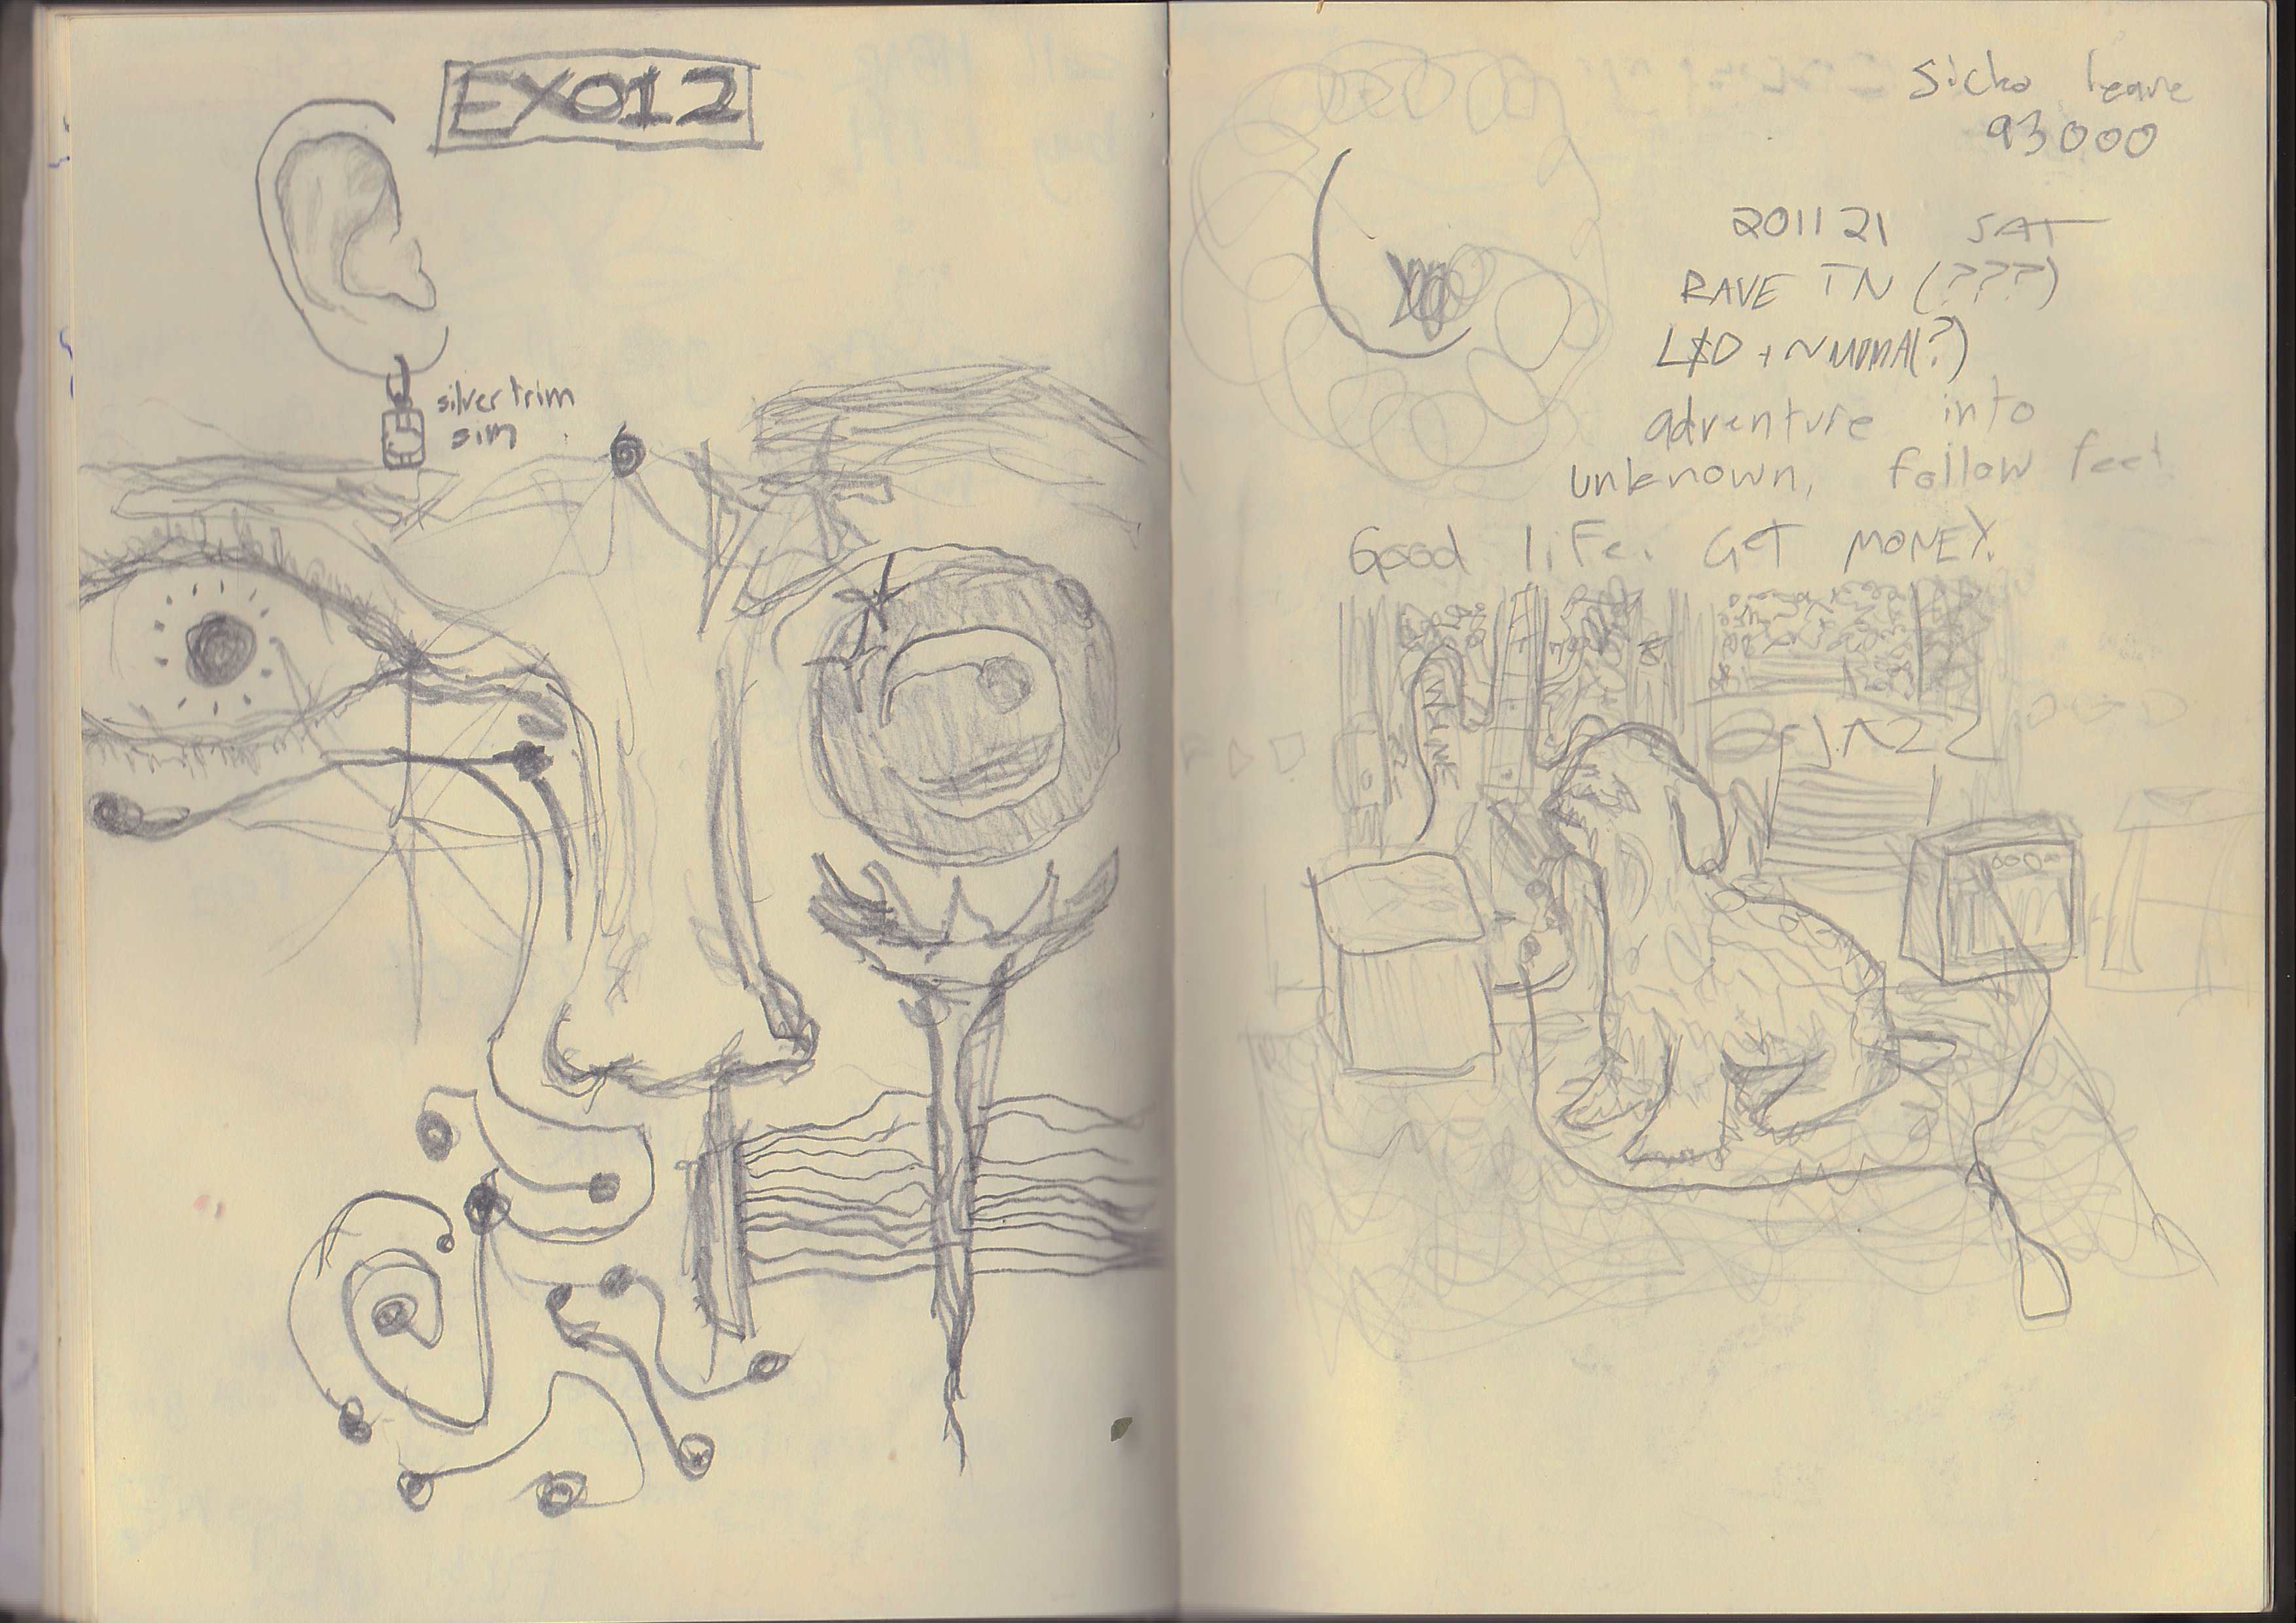 EX012
silver trim
sim
Sicko leave
93000
201121 SAT
RAVE TN (???)
LSD + NMDMA(?)
adventure into
unknown, follow feet
Good life. GET MONEY.